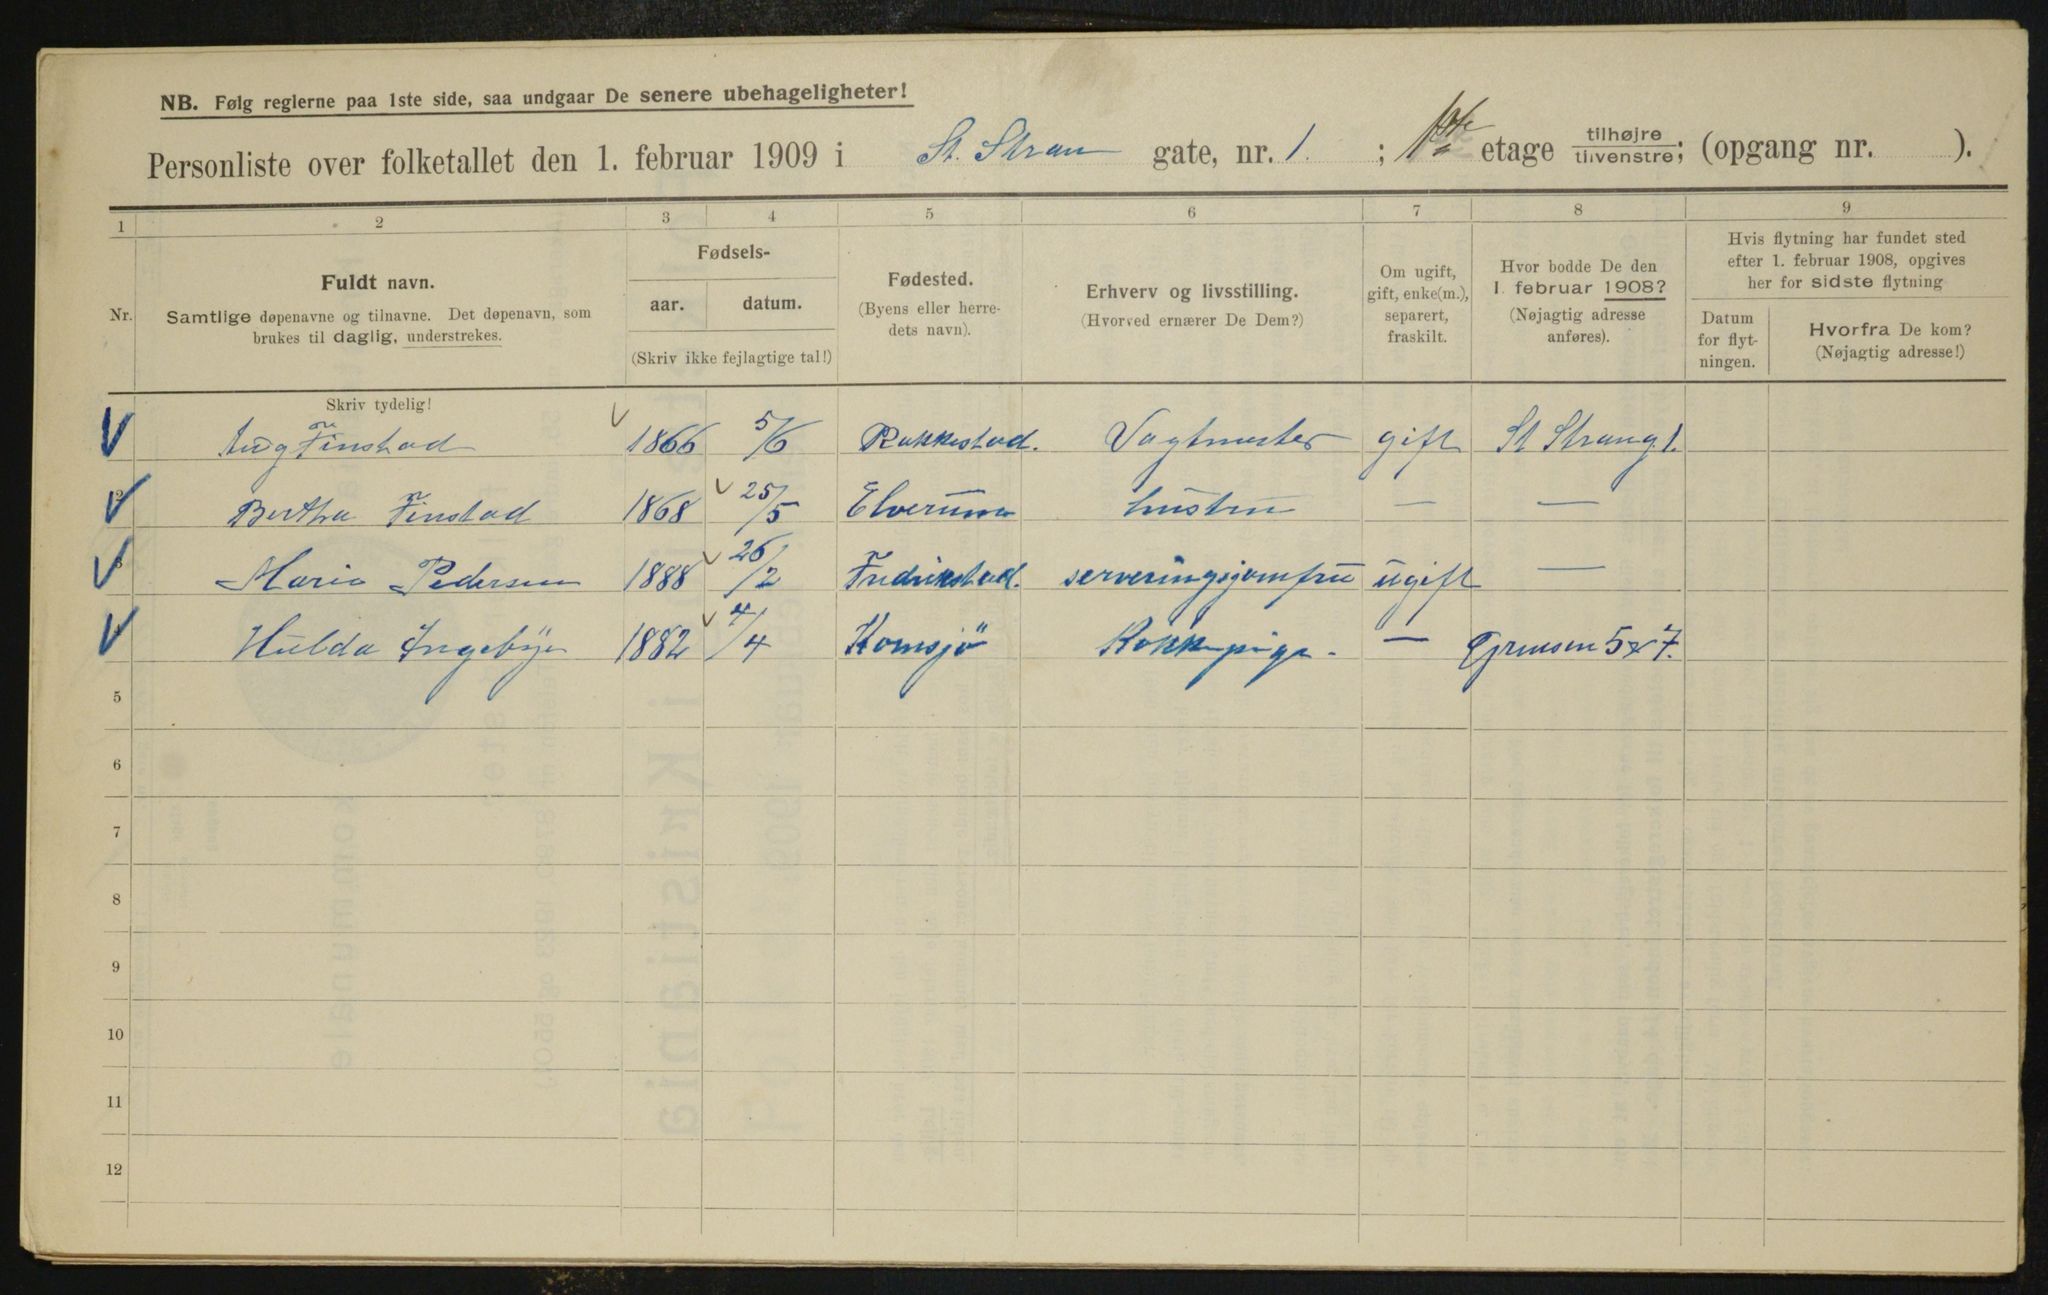 NB. Følg reglerne paa 1ste side, saa undgaar De senere ubehageligheter!
Personliste over folketallet den 1. februar 1909 i St. Stran gate, nr. 1. ; 1ste etage tilhøjre / tilvenstre; (opgang nr. ).
1 2 3 4 5 6 7 8 9
Nr.
Fuldt navn.
Samtlige døpenavne og tilnavne. Det døpenavn, som
brukes til daglig, understrekes.
Fødsels-
aar. datum.
(Skriv ikke fejlagtige tal!)
Fødested.
(Byens eller herre-
dets navn).
Erhverv og livsstilling.
(Hvorved ernærer De Dem?)
Om ugift,
gift, enke(m.),
separert,
fraskilt.
Hvor bodde De den
1. februar 1908?
(Nøjagtig adresse
anføres).
Hvis flytning har fundet sted
efter 1. februar 1908, opgives
her for sidste flytning
Datum
for flyt-
ningen.
Hvorfra De kom?
(Nøjagtig adresse!)
Skriv tydelig!
Aug Finstad 1866 5/6 Rakkestad. Vagtmester gift St Strang 1.
2 Bertha Finstad 1868 25/5 Elverum hustru — —
3 Maria Pedersen 1888 26/2 Fredrikstad. serveringsjomfru ugift —
Hulda Ingebye 1882 4/4 Kokkepige. — Grensen 5 & 7.
5
6
7
8
9
10
11
12